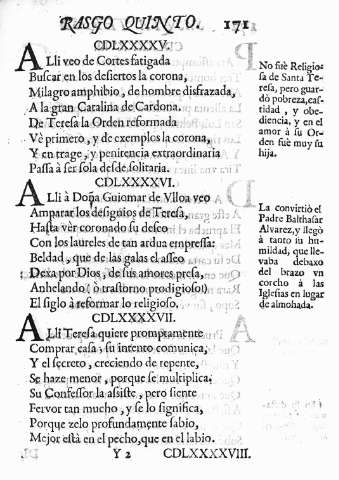 RASGO QUINTO. 171
CDLXXXXV.
ALli veo de Cortes fatigada
Buscar en los desiertos la corona,
Milagro amphibio, de hombre disfrazada,
A la gran Catalina de Cardona.
De Teresa la Orden reformada
Vè primero, y de exemplos la corona,
Y en trage, y penitencia extraordinaria
Passa à ser sola desde solitaria.
No fuè Religio-
sa de Santa Te-
resa, pero guar-
dò pobreza, cas-
tidad, y obe-
diencia, y en el
amor à su Or-
den fuè muy su
hija.
CDLXXXXVI.
ALli à Doña Guiomar de Vlloa veo
Amparar los designios de Teresa,
Hasta vèr coronado su deseo
Con los laureles de tan ardua empressa:
Beldad, que de las galas el asseo
Dexa por Dios, de sus amores presa,
Anhelando (ò trastorno prodigioso!)
El siglo à reformar lo religioso.
La convirtiò el
Padre Balthasar
Alvarez, y llegò
à tanto su hu-
mildad, que lle-
vaba debaxo
del brazo vn
corcho à las
Iglesias en lugar
de almohada.
CDLXXXXVII.
ALli Teresa quiere promptamente
Comprar casa; su intento comunica,
Y el secreto, creciendo de repente,
Se haze menor, porque se multiplica:
Su Confessor la assiste, pero siente
Fervor tan mucho, y se lo significa,
Porque zelo profundamente sabio,
Mejor està en el pecho, que en el labio.
Y 2 CDLXXXXVIII.